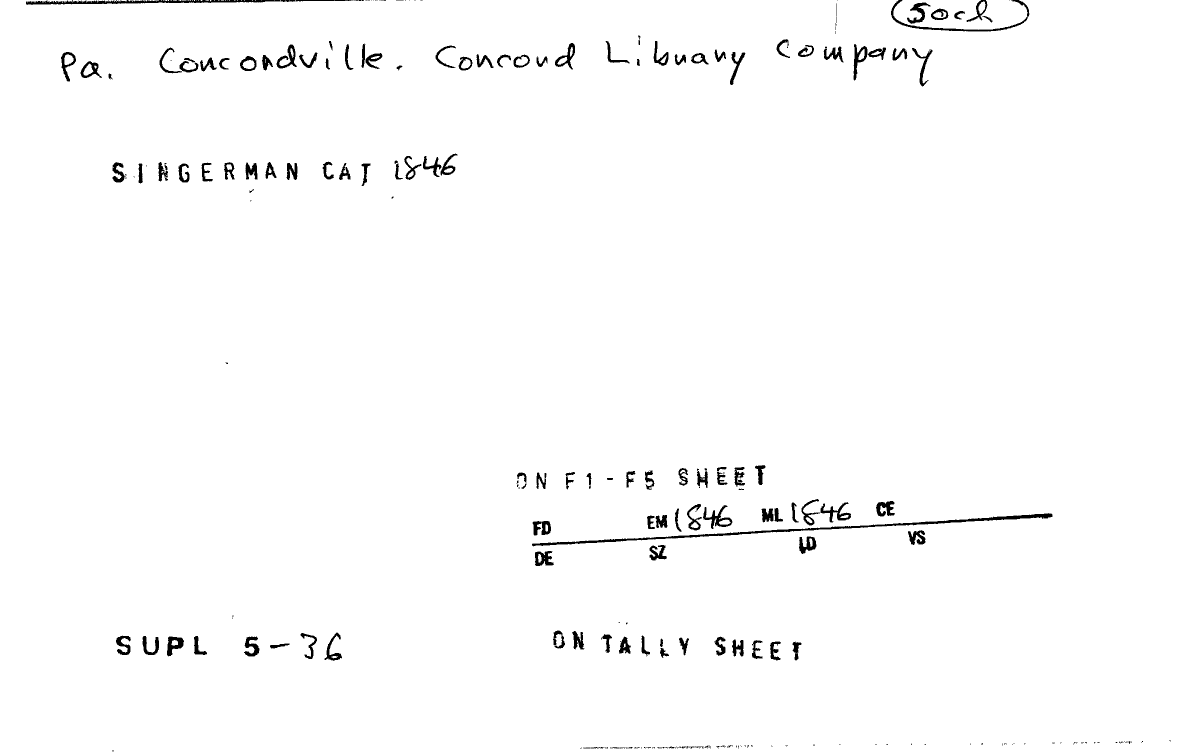 Soch
Pa. Concordville. Concord Library Company
SINGERMAN CAT 1846
ON F1-F5 SHEET
FD EM 1846 ML 1846 CE
DE SZ LD VS
SUPL 5-36 ON TALLY SHEET